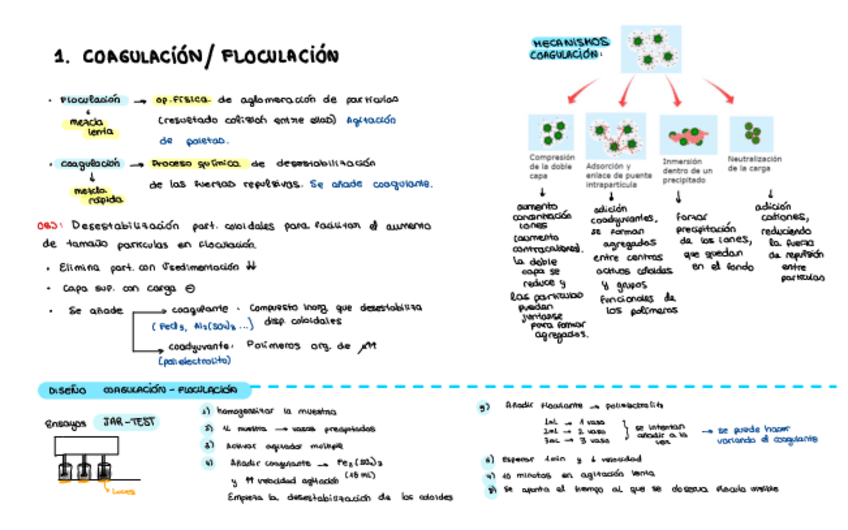 1. COAGULACIÓN/ FLOCULACIÓN
• Floculación → op. física de aglomeración de partículas
mezcla lenta
(resultado colisión entre ellas) Agitación
de paletas.
• coagulación → Proceso químico de desestabilización
mezcla rápida
de las fuerzas repulsivas. Se añade coagulante.
OBJ: Desestabilización part. coloidales para facilitar el aumento
de tamaño partículas en Floculación.
• Elimina part. con Vsedimentación ↓↓
• Capa sup. con carga ⊖
• Se añade → coagulante. Compuesto inorg. que desestabiliza
disp. coloidales
(FeCl3, Al2(SO4)3 ...)
→ coadyuvante. Polímeros org. de ↑M
(polielectrolito)
MECANISMOS
COAGULACIÓN:
Compresión
de la doble
capa
Adsorción y
enlace de puente
intrapartícula
Inmersión
dentro de un
precipitado
Neutralización
de la carga
aumento
concentración
iones
(aumento
contracationes).
la doble
capa se
reduce y
las partículas
puedan
juntarse
para formar
agregados.
adición
coadyuvantes,
se forman
agregados
entre centros
activos coloides
y grupos
funcionales de
los polímeros
formar
precipitación
de los iones,
que quedan
en el fondo
adición
cationes,
reduciendo
la fuerza
de repulsión
entre
partículas
DISEÑO COAGULACIÓN - FLOCULACIÓN
Ensayos JAR-TEST
Luces
1) homogeneizar la muestra
2) 1L muestra → vasos precipitados
3) Activar agitador múltiple
4) Añadir coagulante → Fe2(SO4)3
y ↑↑ velocidad agitación (15 mL)
Empieza la desestabilización de los coloides
5) Añadir floculante → polielectrolito
1mL → 1 vaso
2mL → 2 vaso
3mL → 3 vaso
se intentan
añadir a la
vez
→ se puede hacer
variando el coagulante
6) Esperar 1min y ↓ velocidad
7) 10 minutos en agitación lenta
8) Se apunta el tiempo al que se observa flóculo visible